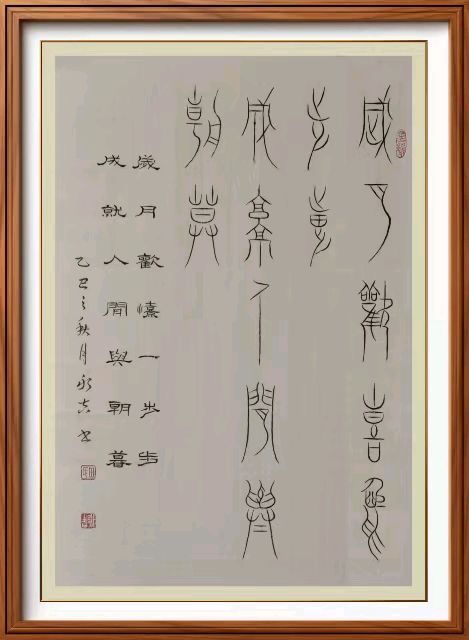 歲月歡喜
步步
成就人間與
朝莫
歲月歡憘一步步
成就人間與朝暮
乙之秋月永书